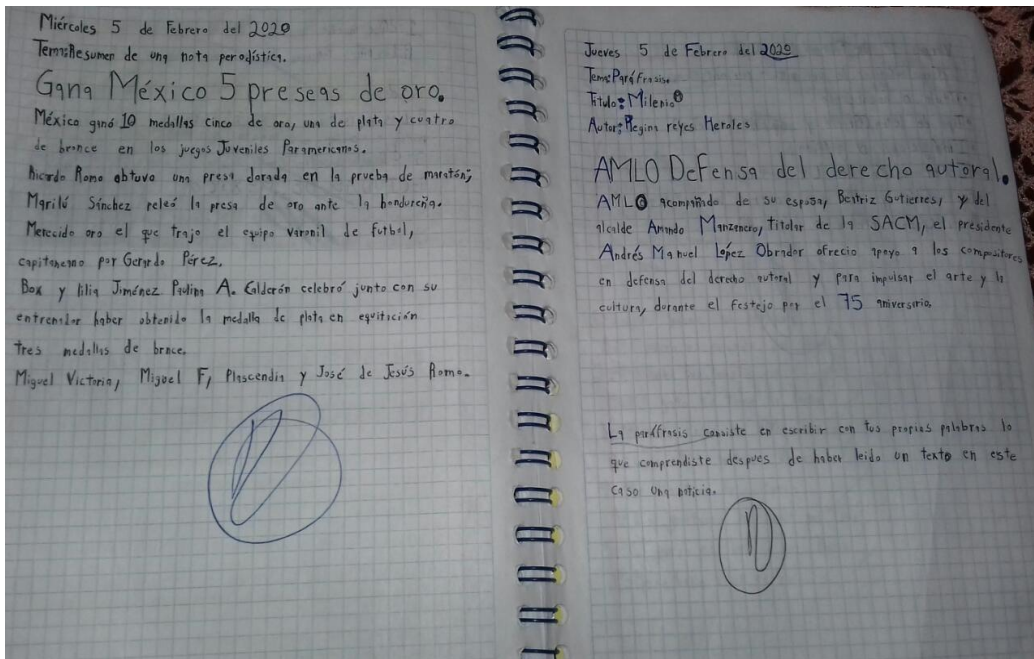 Miércoles 5 de Febrero del 2020
Tema:Resumen de una nota periodística.
Gana México 5 preseas de oro.
México ganó 10 medallas cinco de oro, una de plata y cuatro
de bronce en los juegos Juveniles Paramericanos.
Ricardo Romo obtuvo una presa dorada en la prueba de maratón;
Marilú Sínchez peleó la presa de oro ante la hondureña.
Merecido oro el que trajo el equipo varonil de futbol,
capitaneano por Gerardo Pérez.
Box y lilia Jiménez Paulina A. Calderón celebró junto con su
entrenador haber obtenido la medalla de plata en equitición
tres medallas de brnce.
Miguel Victoria, Miguel F, Plascendia y José de Jesús Romo.
Jueves 5 de Febrero del 2020
Tema:Paráfrasis.
Titulo: Milenio
Autor: Regina reyes Heroles
AMLO Defensa del derecho autoral.
AMLO acompañado de su esposa, Beatriz Gutierres, y del
alcalde Amando Manzanero, Titolar de la SACM, el presidente
Andrés Manuel López Obrador ofrecio apoyo a los compositores
en defensa del derecho autoral y para impulsar el arte y la
cultura, durante el festejo por el 75 aniversario.
La paráfrasis consiste en escribir con tus propias palabras lo
que comprendiste despues de haber leido un texto en este
caso una noticia.